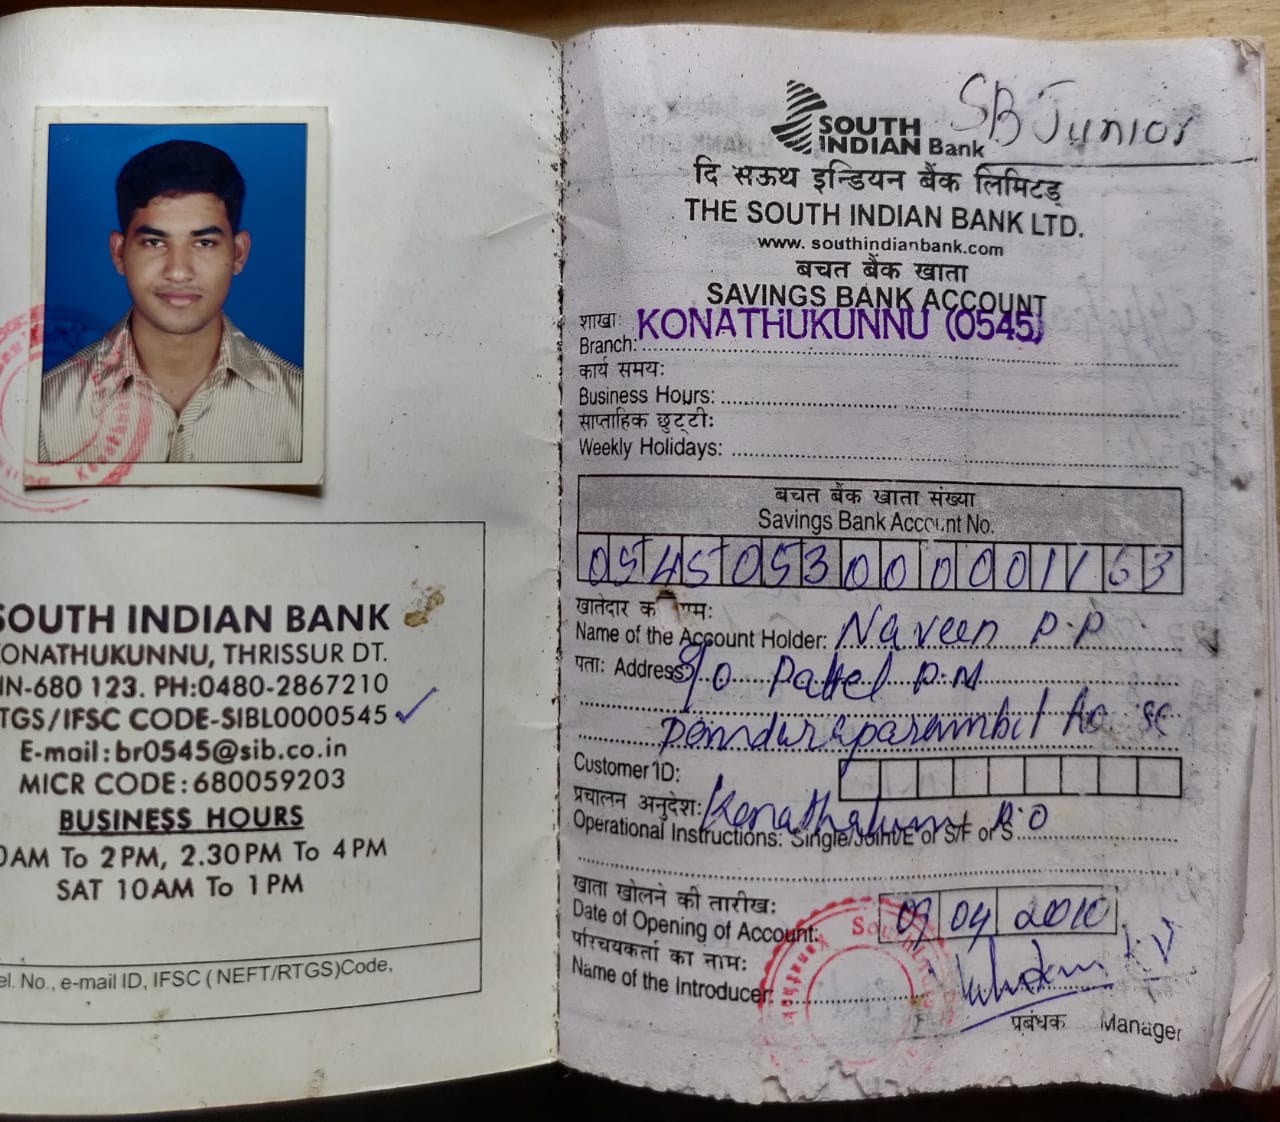 SOUTH INDIAN BANK
KONATHUKUNNU, THRISSUR DT.
IN-680 123. PH:0480-2867210
TGS/IFSC CODE-SIBL0000545
E-mail:br0545@sib.co.in
MICR CODE:680059203
BUSINESS HOURS
0AM To 2PM, 2.30PM To 4PM
SAT 10AM To 1PM
el. No., e-mail ID, IFSC (NEFT/RTGS)Code,
SB Junior
SOUTH
INDIAN Bank
दि सऊथ इन्डियन बैंक लिमिटड्
THE SOUTH INDIAN BANK LTD.
www. southindianbank.com
बचत बैंक खाता
SAVINGS BANK ACCOUNT
शाखाः
Branch: KONATHUKUNNU (0545)
कार्य समयः
Business Hours:
साप्ताहिक छुट्टीः
Weekly Holidays:
बचत बैंक खाता संख्या
Savings Bank Account No.
0545053000000 1163
खातेदार का नामः
Name of the Account Holder: Naveen P.P
पताः Address: S/O Pattel P.M
House
Customer ID:
प्रचालन अनुदेशः P.O
Operational Instructions: Single/Joint/E or S/F or S
खाता खोलने की तारीखः
Date of Opening of Account: 09 04 2010
परिचयकर्ता का नामः
Name of the Introducer:
प्रबंधक Manager